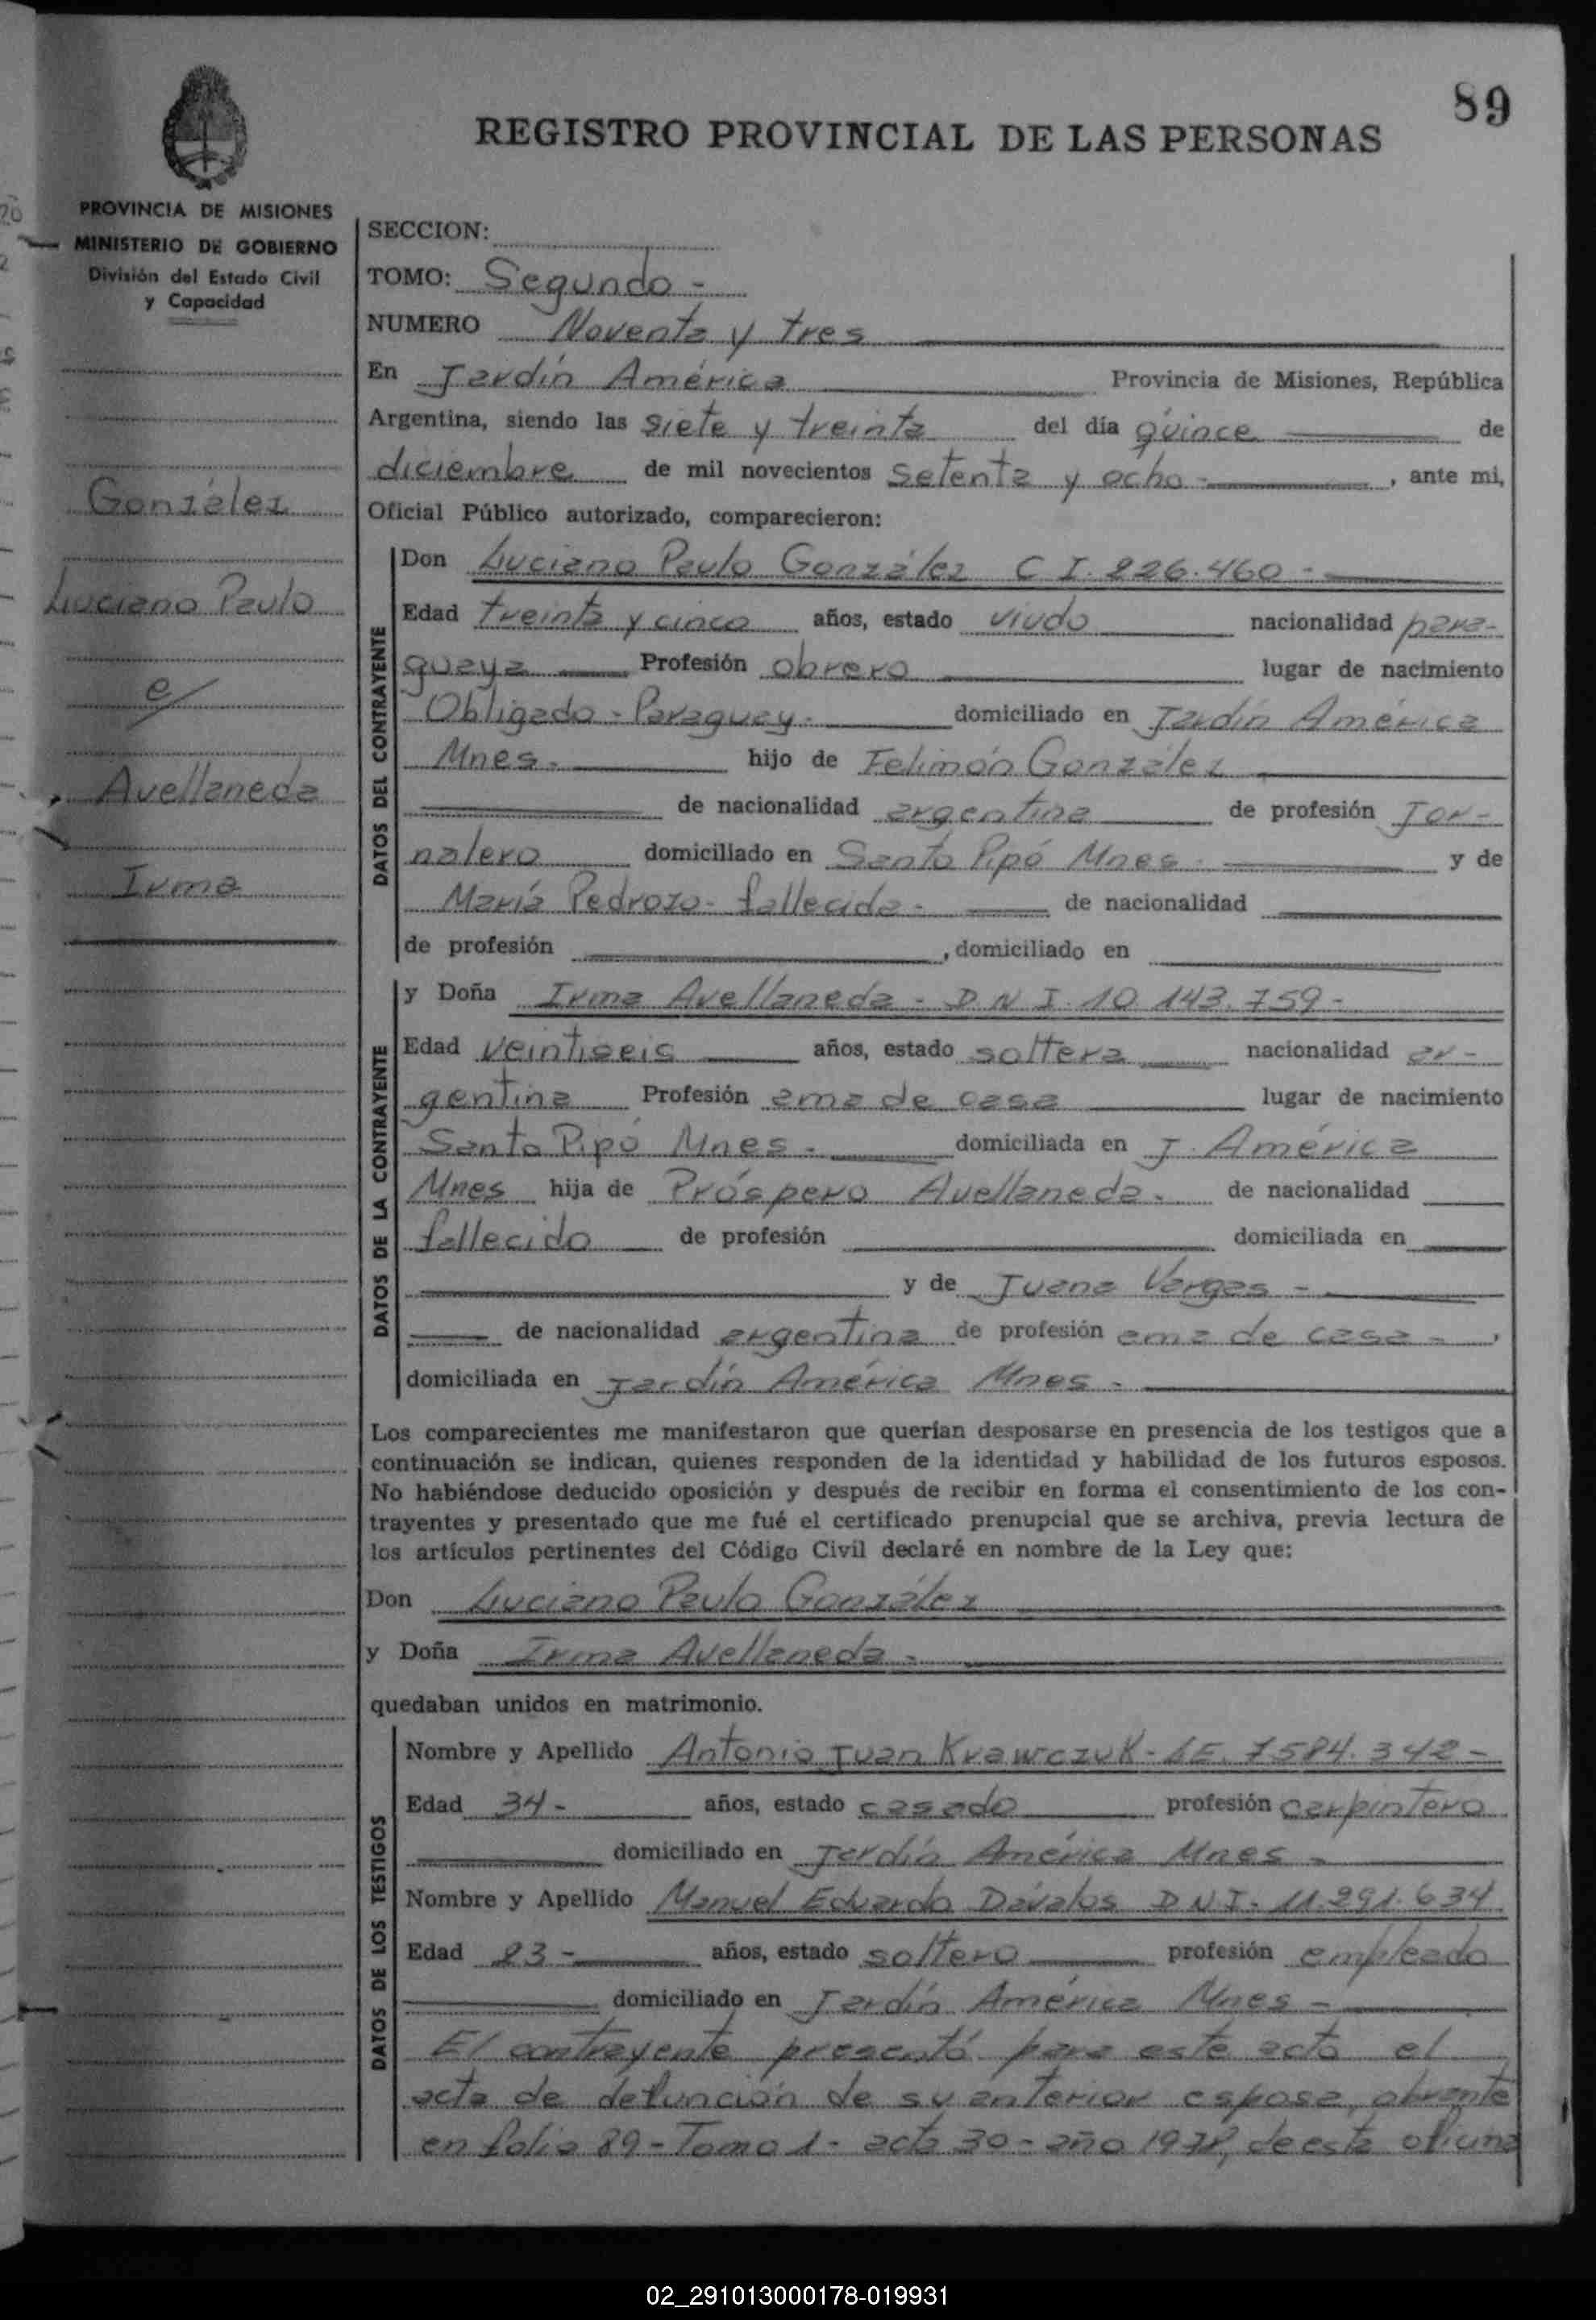 89
REGISTRO PROVINCIAL DE LAS PERSONAS
PROVINCIA DE MISIONES
MINISTERIO DE GOBIERNO
División del Estado Civil
y Capacidad
González
Luciano Paulo
c/
Avellaneda
Irma
SECCION:
TOMO: Segundo -
NUMERO Noventa y tres
En Jardín América Provincia de Misiones, República
Argentina, siendo las siete y treinta del día quince de
diciembre de mil novecientos setenta y ocho - , ante mi,
Oficial Público autorizado, comparecieron:
DATOS DEL CONTRAYENTE
Don Luciano Paulo González C I. 226.460 -
Edad treinta y cinco años, estado viudo nacionalidad para-
guaya Profesión obrero lugar de nacimiento
Obligado - Paraguay - domiciliado en Jardín América
Mnes. hijo de Felimón González
de nacionalidad argentina de profesión Jor-
nalero domiciliado en Santo Pipó Mnes - y de
María Pedrozo - fallecida - de nacionalidad
de profesión , domiciliado en
DATOS DE LA CONTRAYENTE
y Doña Irma Avellaneda - D. N. I. 10.143.759 -
Edad veintiseis años, estado soltera nacionalidad ar-
gentina Profesión ama de casa lugar de nacimiento
Santo Pipó Mnes - domiciliada en J. América
Mnes hija de Próspero Avellaneda - de nacionalidad
fallecido de profesión domiciliada en
y de Juana Vargas -
de nacionalidad argentina de profesión ama de casa - ,
domiciliada en Jardín América Mnes -
Los comparecientes me manifestaron que querían desposarse en presencia de los testigos que a
continuación se indican, quienes responden de la identidad y habilidad de los futuros esposos.
No habiéndose deducido oposición y después de recibir en forma el consentimiento de los con-
trayentes y presentado que me fué el certificado prenupcial que se archiva, previa lectura de
los artículos pertinentes del Código Civil declaré en nombre de la Ley que:
Don Luciano Paulo González
y Doña Irma Avellaneda -
quedaban unidos en matrimonio.
DATOS DE LOS TESTIGOS
Nombre y Apellido Antonio Juan Krawczuk - LE. 7584.342 -
Edad 34 - años, estado casado profesión carpintero
domiciliado en Jardín América Mnes -
Nombre y Apellido Manuel Eduardo Dávalos D N.I. 11.291.634
Edad 23 - años, estado soltero profesión empleado
domiciliado en Jardín América Mnes -
El contrayente presentó para este acto el
acta de defunción de su anterior esposa, obrante
en folio 89 - Tomo 1 - acta 30 - año 1978, de esta oficina
02_291013000178-019931